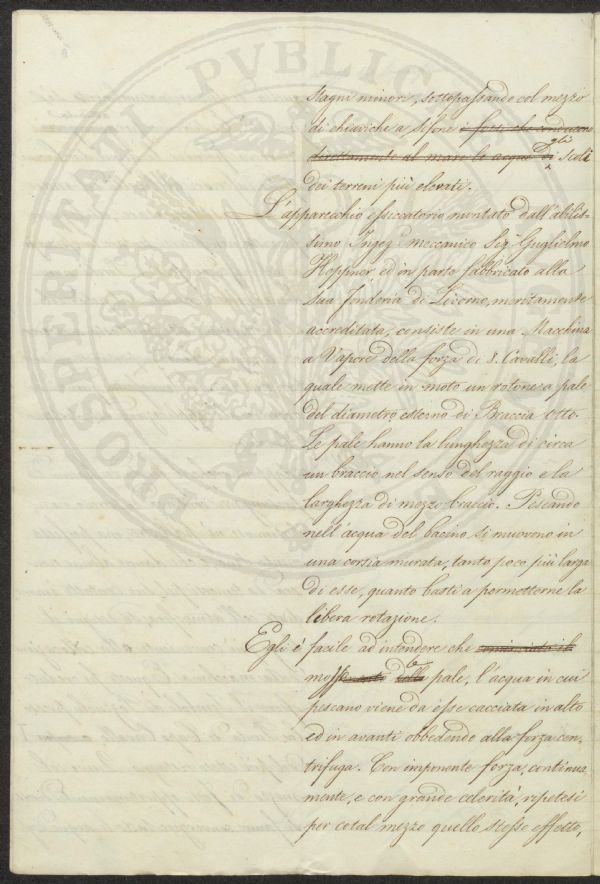 stagni minori, sottopassando col mezzo
di chiaviche a sifone i fossi che conducono
direttamente al mare le acque di gli scoli
dei terreni più elevati.
L'apparecchio essiccatorio montato dall'abilis-
simo Ingeg.re meccanico Sig.r Guglielmo
Hoppner ed in parte fabbricato alla
sua fonderia di Livorno, meritamente
accreditata, consiste in una Macchina
a Vapore della forza di 8. Cavalli, la
quale mette in moto un rotone a pale
del diametro esterno di Braccia otto.
Le pale hanno la lunghezza di circa
un braccio nel senso del raggio e la
larghezza di mezzo braccio. Pescando
nell'acqua del bacino si muovono in
una corsia murata, tanto poco più larga
di esse, quanto basti a permetterne la
libera rotazione.
Egli è facile ad intendere che cominciato il
mosse delle le pale, l'acqua in cui
pescano viene da esse cacciata in alto
ed in avanti obbedendo alla forza cen-
trifuga. Con imponente forza, continua
mente, e con grande celerità, ripetesi
per cotal mezzo quello stesso effetto,
PROSPERITATI PVBLIC